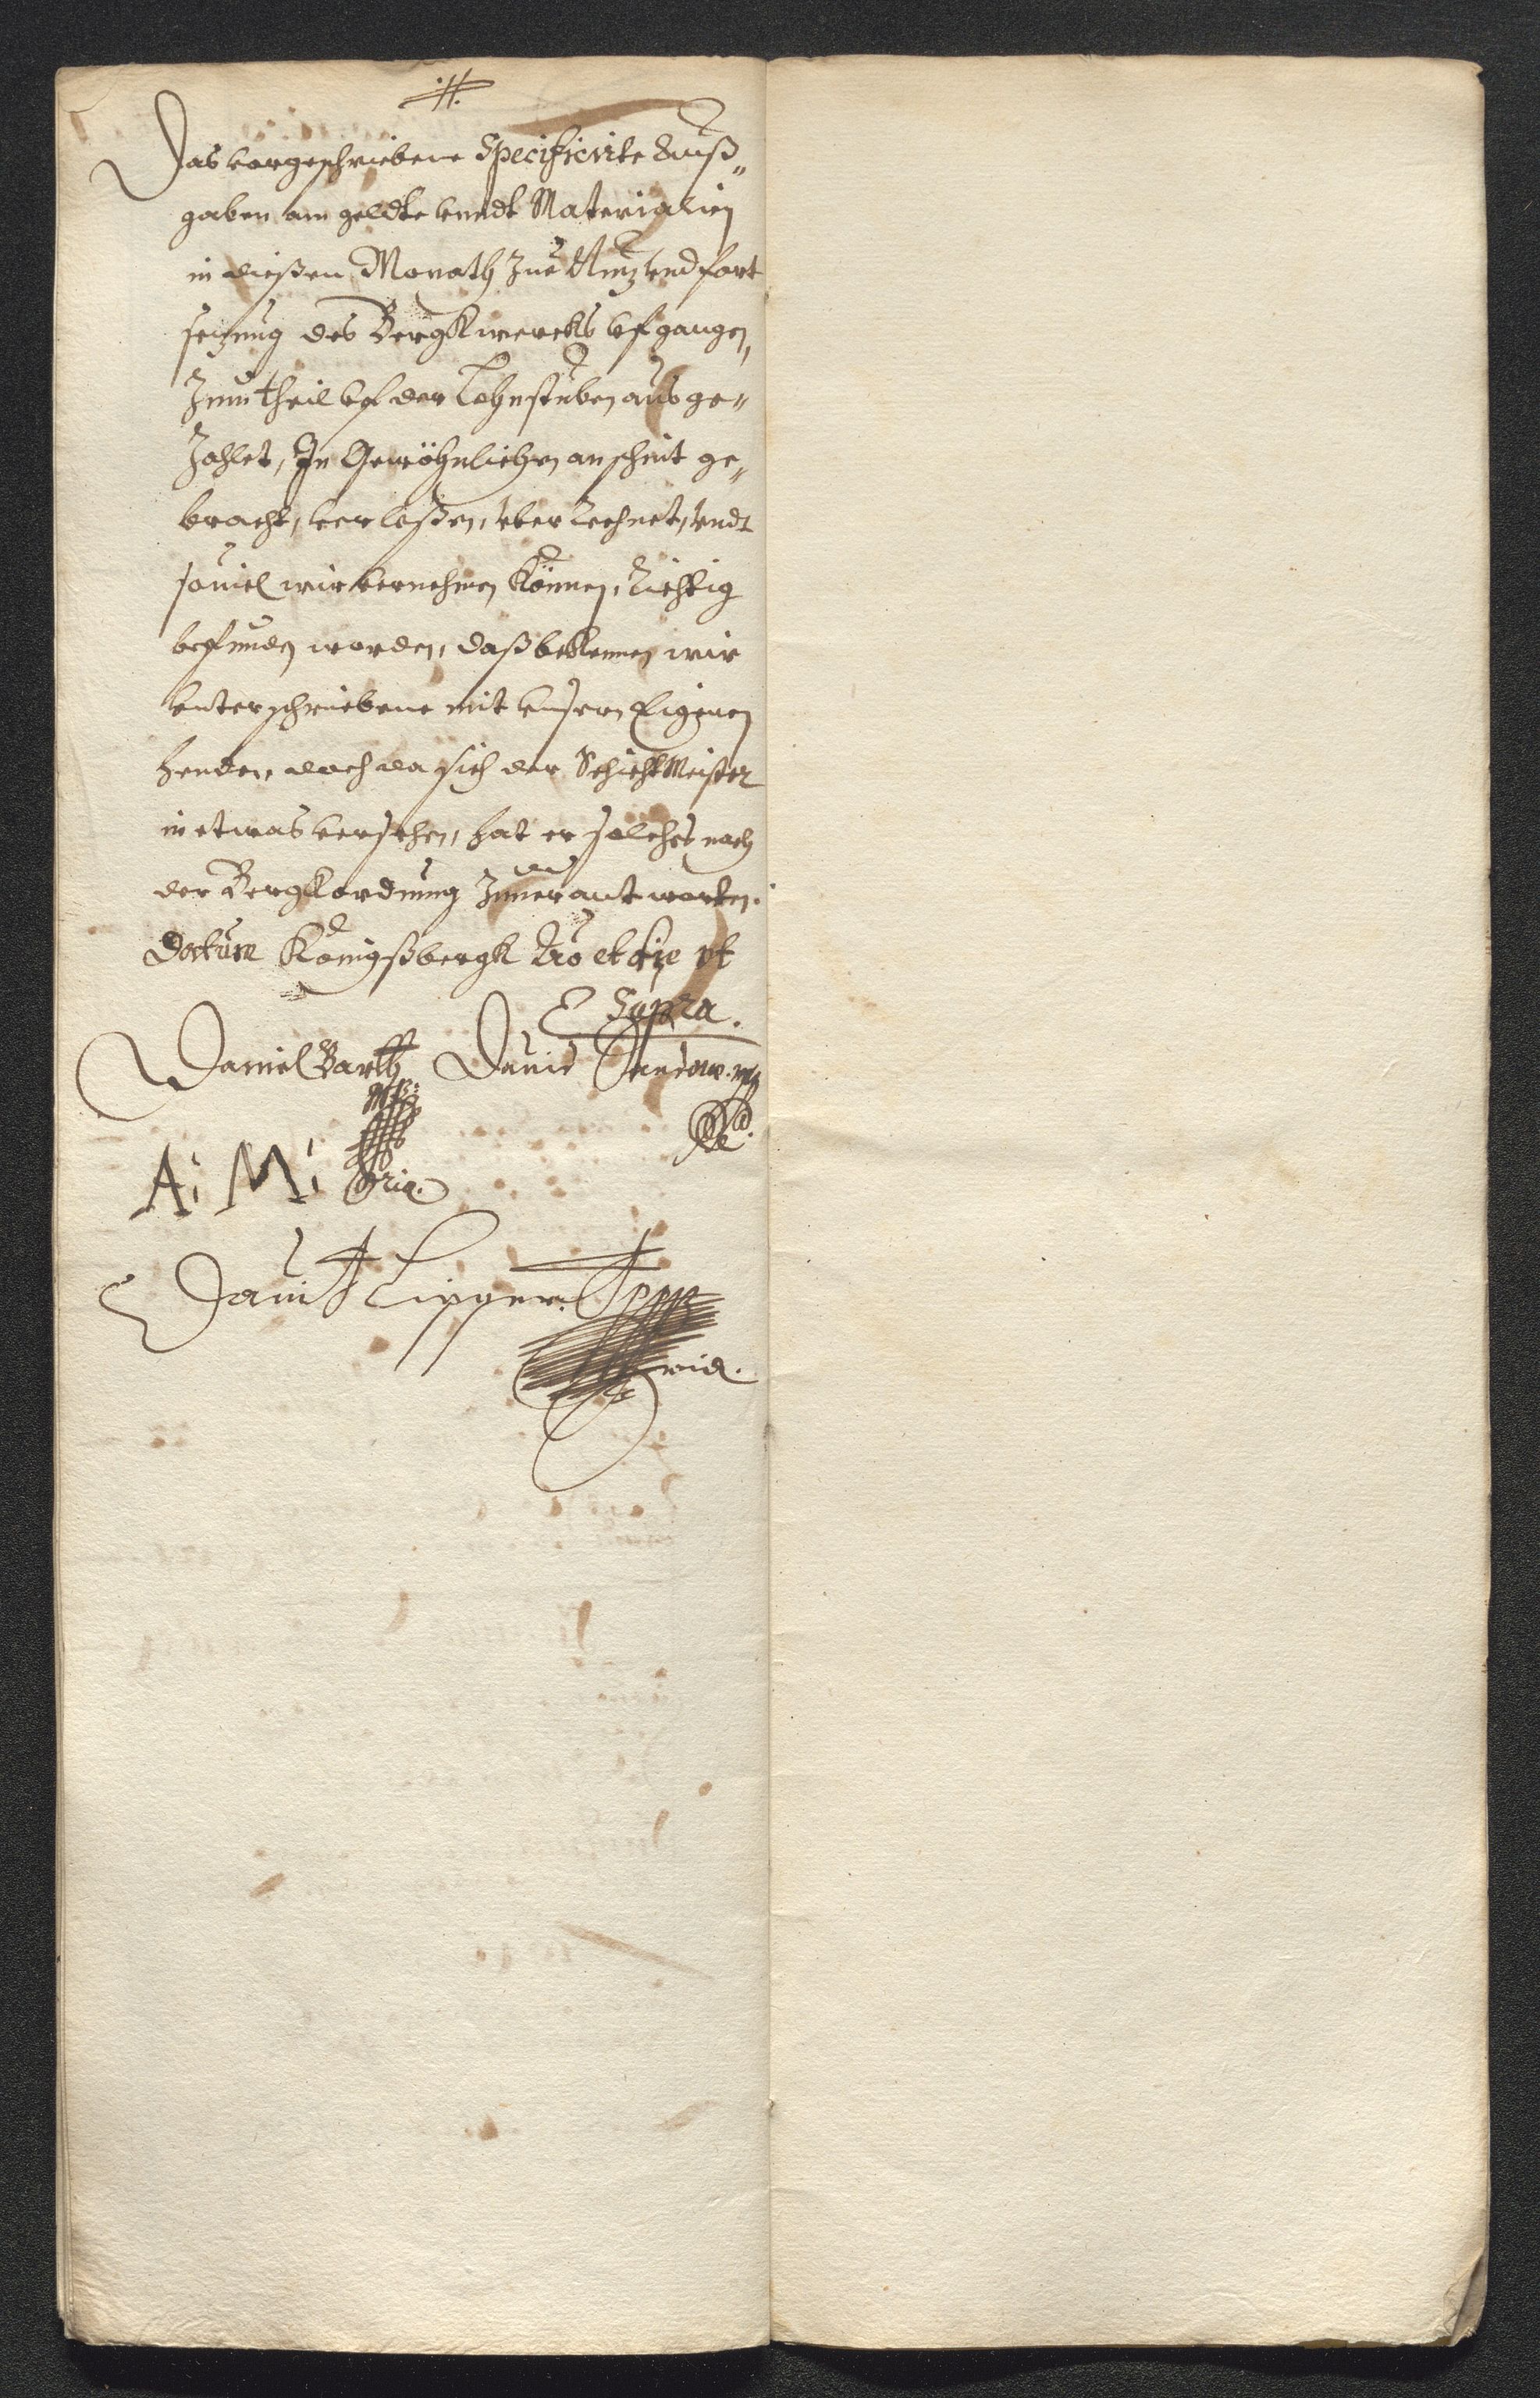 Das vorgeschriebene Specificirte Auß„
gaben am geldte vnndt Materialien
in dießen Monath Zue Nutz vnd fort
setzung des Bergkwercks vfgangen,
Zum theil vf der Lohnstuben aus ge„
Zahlet, In Gewöhnlichen anschnit ge„
bracht, verleßen, vberrechnet, vndt
souiel wir vernehmen können, Richtig
befunden worden, daß bekennen wir
vnterschriebene mit vnsern Eigenen
henden, doch da sich der Schichtmeister
in etwas versehen, hat er solches nach
der Bergkordnung Zuuerantworten.
Datum Königßbergk Ao et die vt
Supra.
Daniel Barth Dauid
A: M: ria.
Dauidt Lipper
ria.